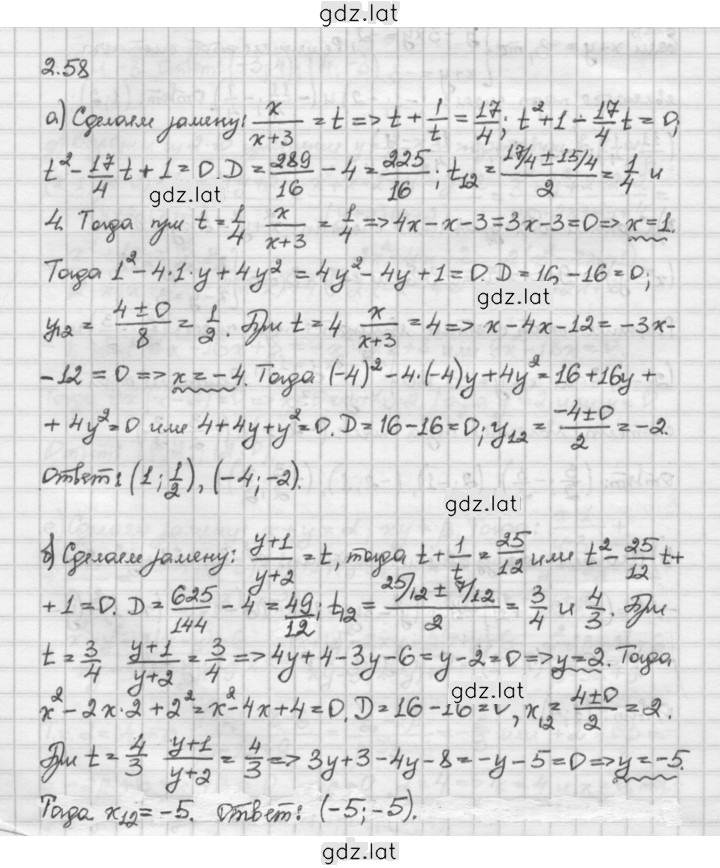 gdz.lat
2.58
а) Сделаем замену: x/(x+3) = t => t + 1/t = 17/4; t² + 1 - 17/4 t = 0;
t² - 17/4 t + 1 = 0. D = 289/16 - 4 = 225/16; t₁₂ = (17/4 ± 15/4)/2 = 1/4 и
gdz.lat
4. Тогда при t = 1/4 x/(x+3) = 1/4 => 4x - x - 3 = 3x - 3 = 0 => x = 1.
Тогда 1² - 4·1·y + 4y² = 4y² - 4y + 1 = 0. D = 16 - 16 = 0;
gdz.lat
y₁₂ = (4 ± 0)/8 = 1/2. При t = 4 x/(x+3) = 4 => x - 4x - 12 = -3x-
- 12 = 0 => x = -4. Тогда (-4)² - 4·(-4)y + 4y² = 16 + 16y +
+ 4y² = 0 или 4 + 4y + y² = 0. D = 16 - 16 = 0; y₁₂ = (-4 ± 0)/2 = -2.
Ответ: (1; 1/2), (-4; -2).
gdz.lat
б) Сделаем замену: (y+1)/(y+2) = t, тогда t + 1/t = 25/12 или t² - 25/12 t +
+ 1 = 0. D = 625/144 - 4 = 49/12; t₁₂ = (25/12 ± 7/12)/2 = 3/4 и 4/3. При
t = 3/4 (y+1)/(y+2) = 3/4 => 4y + 4 - 3y - 6 = y - 2 = 0 => y = 2. Тогда
gdz.lat
x² - 2x·2 + 2² = x² - 4x + 4 = 0. D = 16 - 16 = 0, x₁₂ = (4 ± 0)/2 = 2.
При t = 4/3 (y+1)/(y+2) = 4/3 => 3y + 3 - 4y - 8 = -y - 5 = 0 => y = -5.
Тогда x₁₂ = -5. Ответ: (-5; -5).
gdz.lat